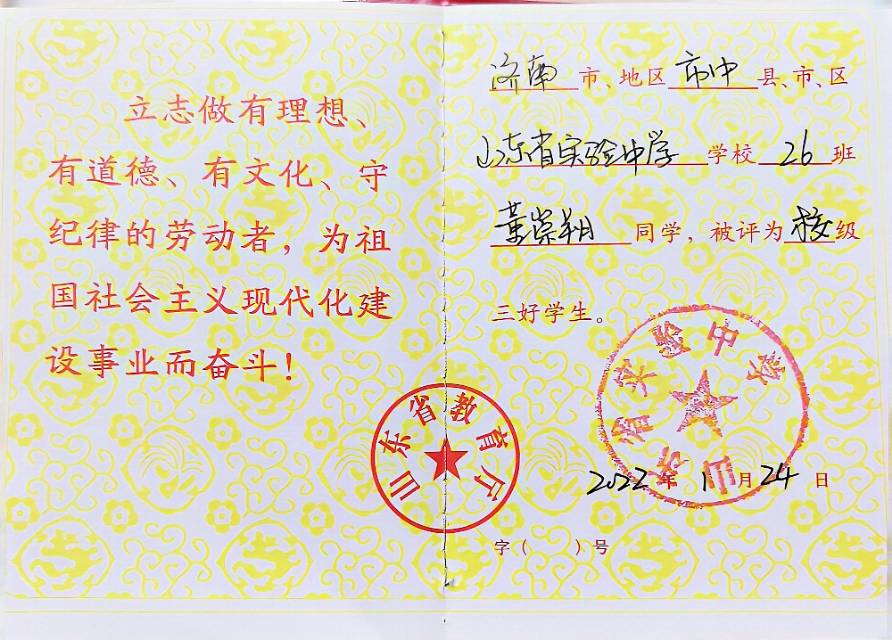 立志做有理想、
有道德、有文化、守
纪律的劳动者，为祖
国社会主义现代化建
设事业而奋斗！
山东省教育厅
济南市、地区市中县、市、区
山东省实验中学学校26班
董崇翔同学，被评为校级
三好学生。
山东省实验中学
2022年1月24日
字（ ）号